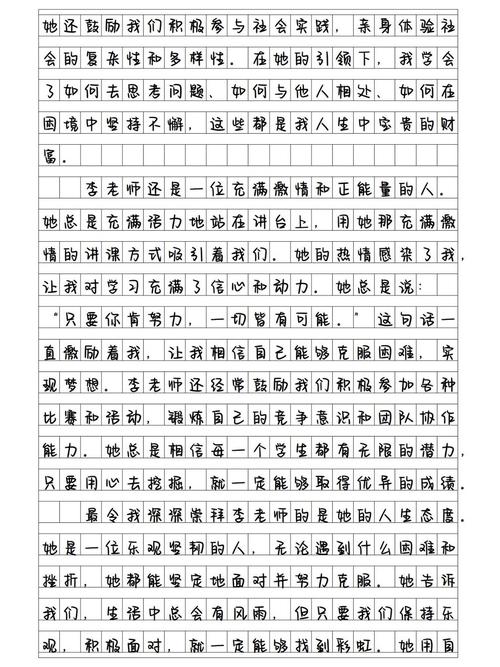 她还鼓励我们积极参与社会实践，亲身体验社
会的复杂性和多样性．在她的引领下，我学会
了如何去思考问题、如何与他人相处、如何在
困境中坚持不懈，这些都是我人生中宝贵的财
富．
李老师还是一位充满激情和正能量的人．
她总是充满活力地站在讲台上，用她那充满激
情的讲课方式吸引着我们．她的热情感染了我，
让我对学习充满了信心和动力．她总是说：
“只要你肯努力，一切皆有可能．”这句话一
直激励着我，让我相信自己能够克服困难，实
现梦想．李老师还经常鼓励我们积极参加各种
比赛和活动，锻炼自己的竞争意识和团队协作
能力．她总是相信每一个学生都有无限的潜力，
只要用心去挖掘，就一定能够取得优异的成绩．
最令我深深崇拜李老师的是她的人生态度．
她是一位乐观坚韧的人，无论遇到什么困难和
挫折，她都能坚定地面对并努力克服．她告诉
我们，生活中总会有风雨，但只要我们保持乐
观，积极面对，就一定能够找到彩虹．她用自